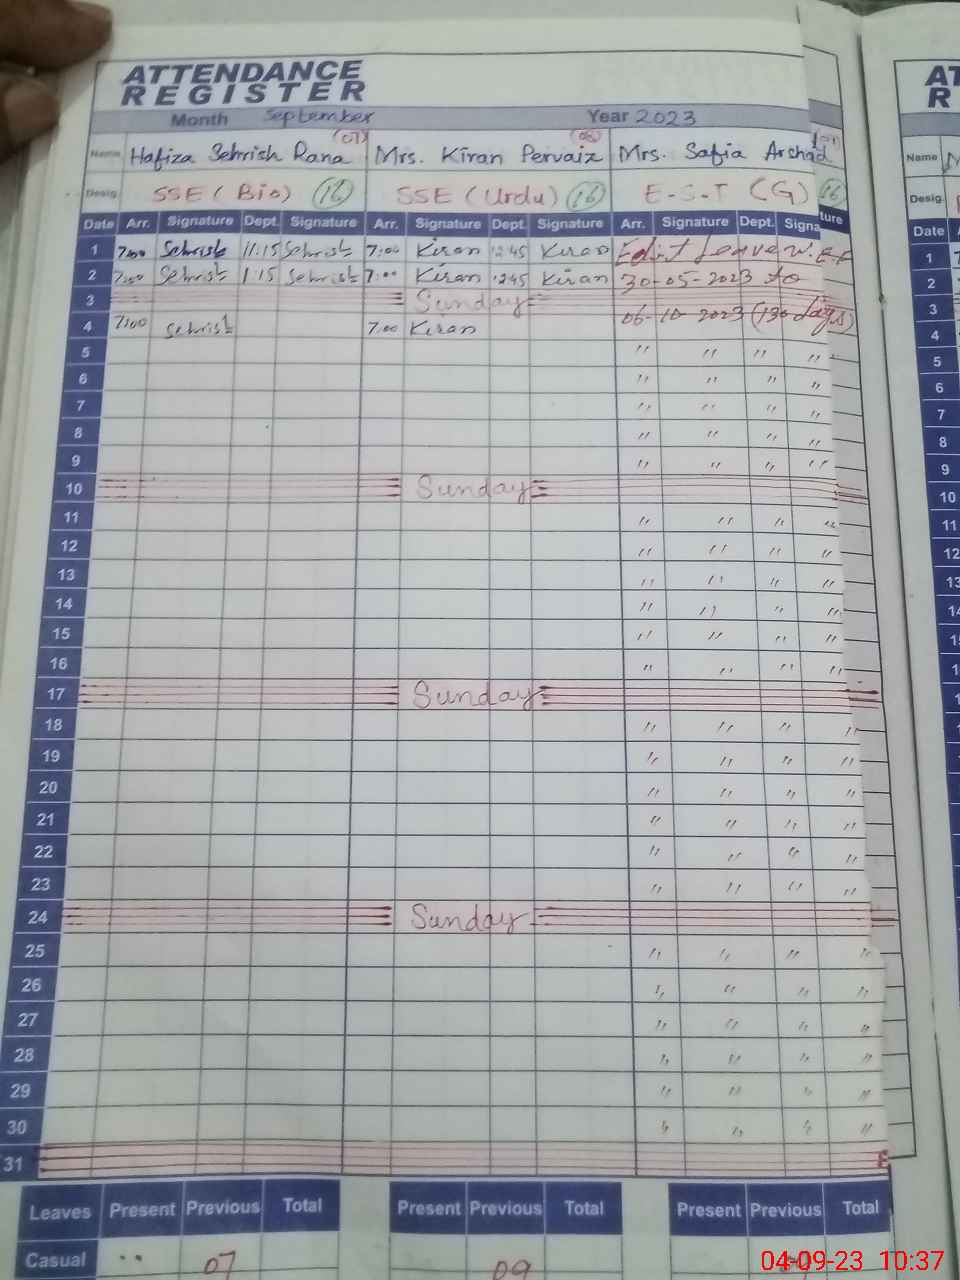 ATTENDANCE
REGISTER
Month September Year 2023
(07) (08)
Name Hafiza Sehrish Rana Mrs. Kiran Pervaiz Mrs. Safia Arshad
Desig. SSE (Bio) (16) SSE (Urdu) (16) E-S-T (G) 16
Date Arr. Signature Dept. Signature Arr. Signature Dept. Signature Arr. Signature Dept. Signa ture
1 7:00 Sehrish 11:15 Sehrish 7:00 Kiran 12:45 Kiran Leave w.e.f
2 7:00 Sehrish 1:15 Sehrish 7:00 Kiran 1245 Kiran 30-05-2023 to
3 Sunday
06-10-2023 (130 days)
4 7:00 Sehrish 7:00 Kiran
5 " " " "
6 " " " "
7 " " " "
8 " " " "
9 " " " "
10 Sunday
11 " " " "
12 " " " "
13 " " " "
14 " " " "
15 " " " "
16 " " " "
17 Sunday
18 " " " "
19 " " " "
20 " " " "
21 " " " "
22 " " " "
23 " " " "
24 Sunday
25 " " " "
26 " " " "
27 " " " "
28 " " " "
29 " " " "
30 " " " "
31
Leaves Present Previous Total Present Previous Total Present Previous Total
Casual 07 09
AT
R
Name
Desig.
Date
1
2
3
4
5
6
7
8
9
10
11
12
13
14
15
04-09-23 10:37